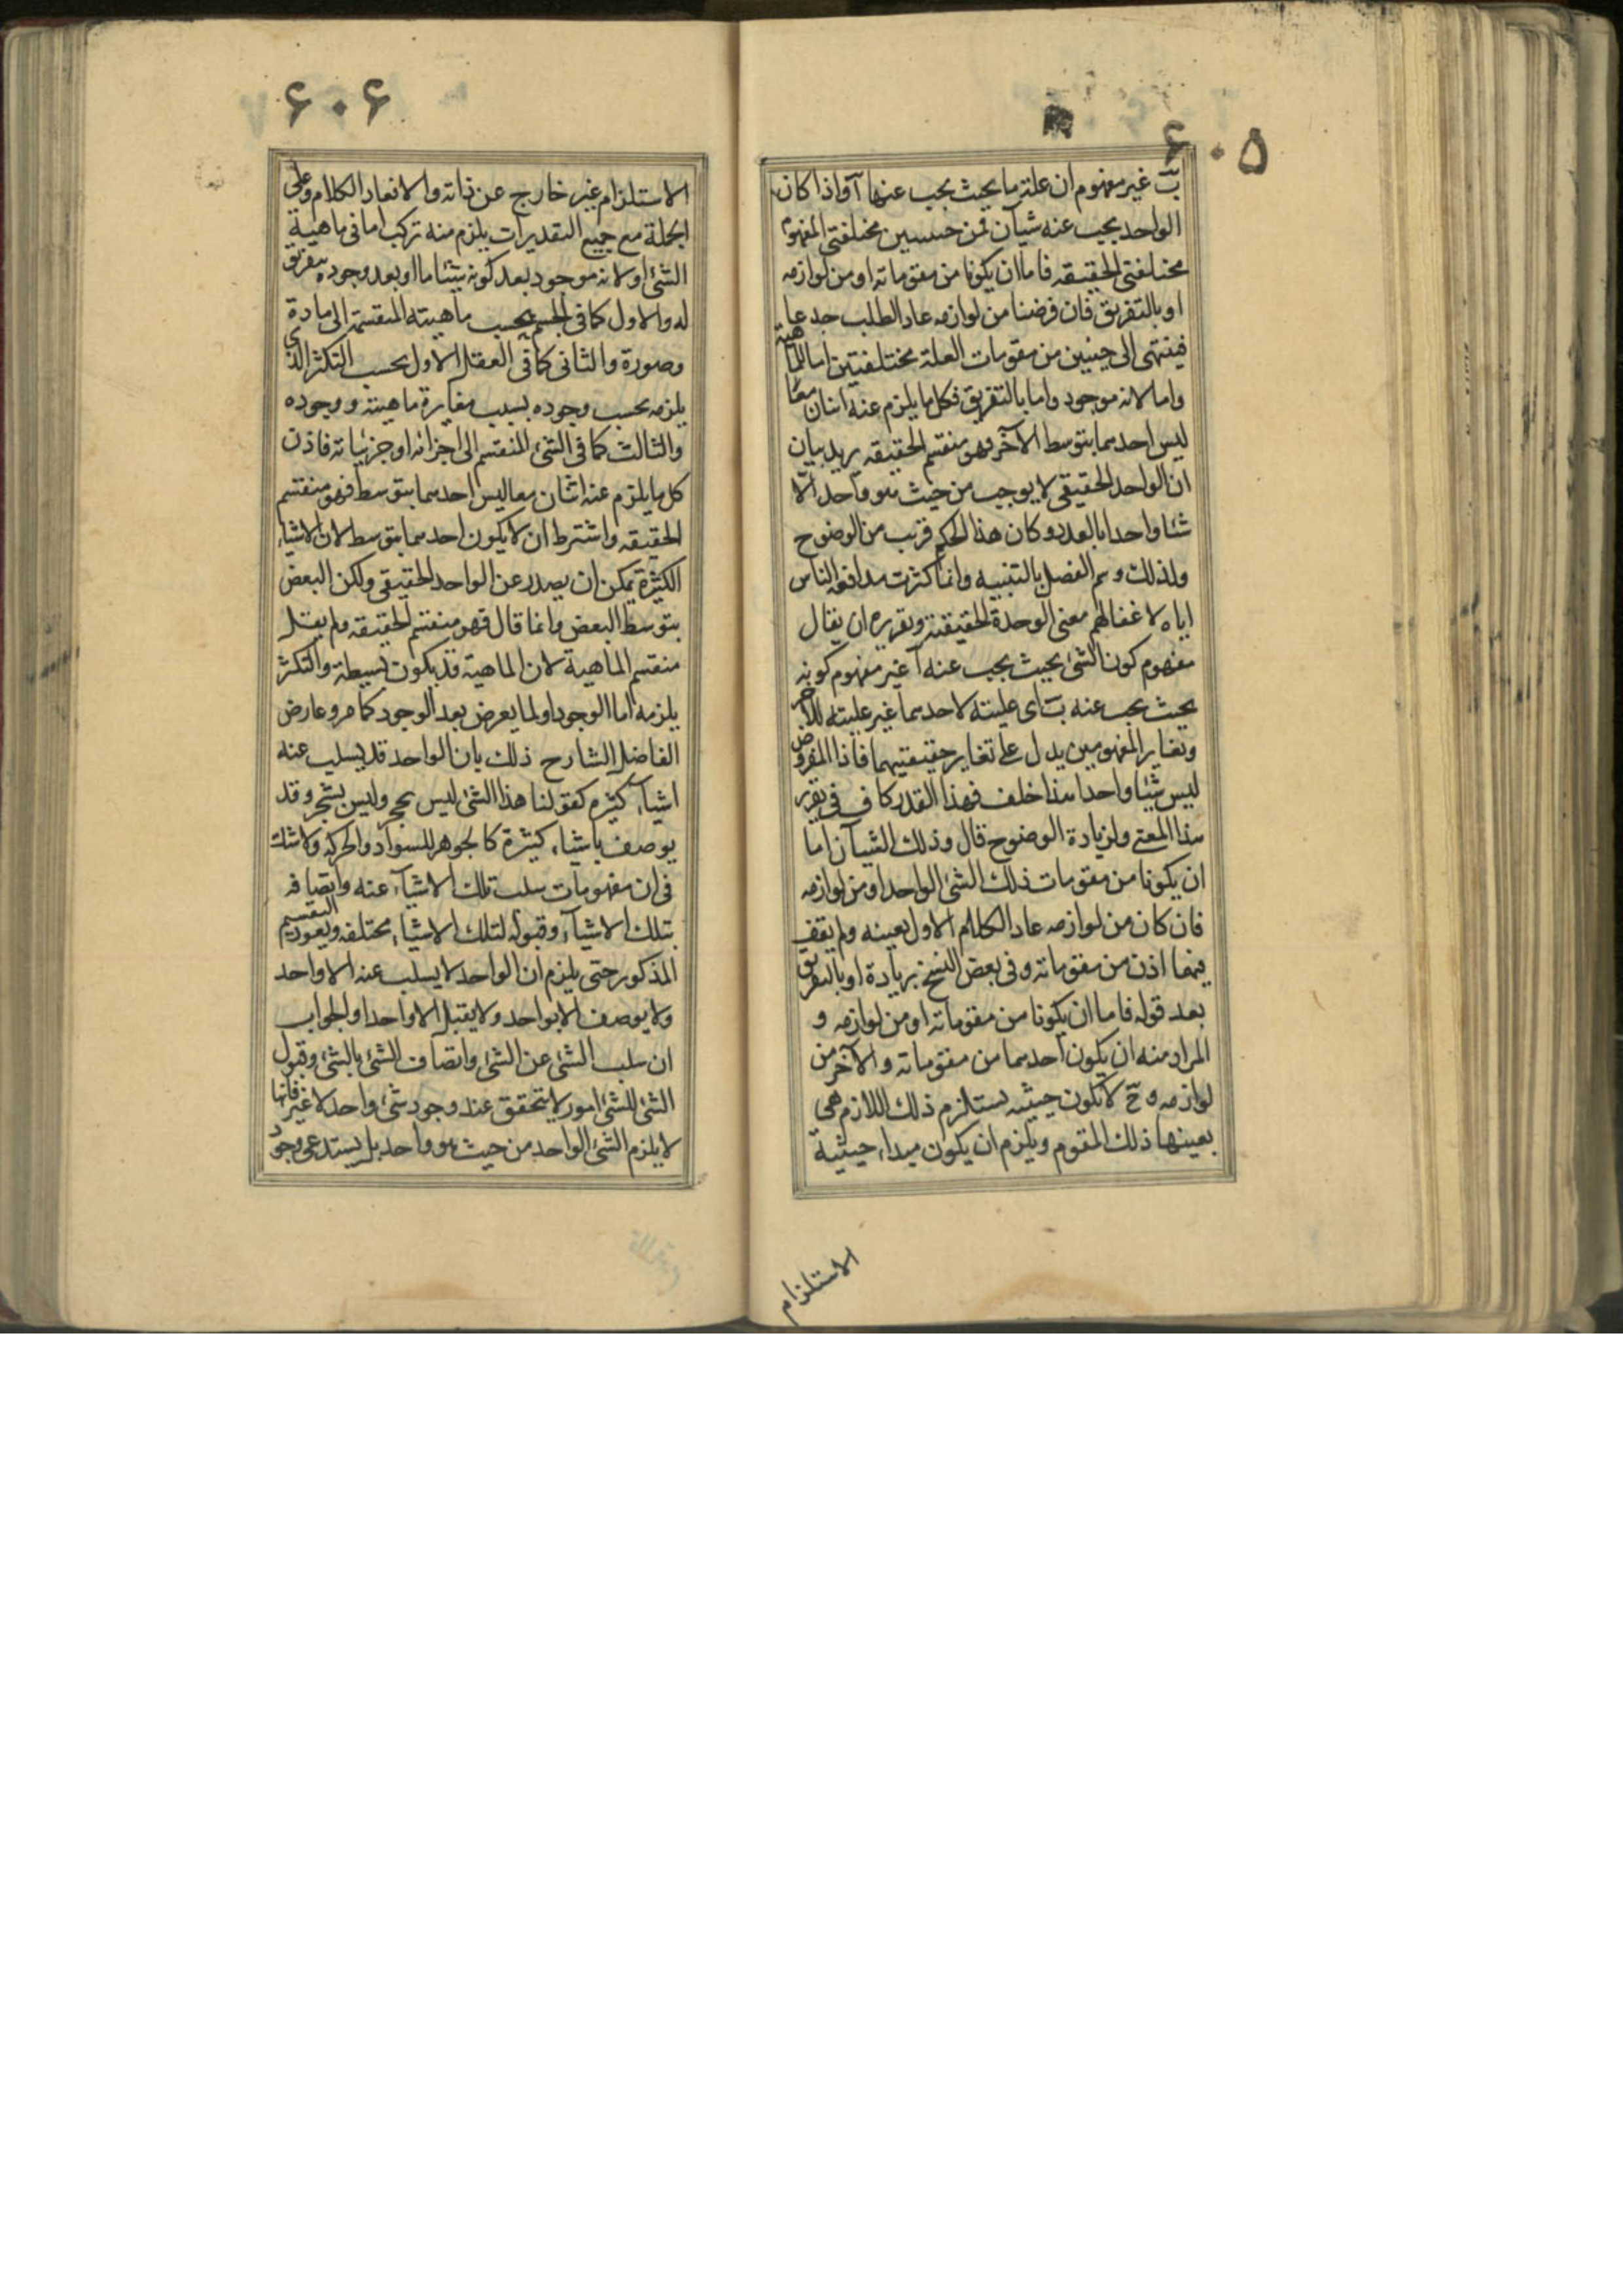 ۶۰۵
ب غير مفهوم ان علة ما بحيث يجب عنها آ واذا كان
الواحد يجب عنه شيآن فمن حيثيتين مختلفتى المفهوم
مختلفتى الحقيقه فاما ان يكونا من مقوماته او من لوازمه
او بالتفريق فان فرضنا من لوازمه عاد الطلب جدعا
فينتهى الى حيثيتين من مقومات العلة مختلفتين اما للماهية
واما لانه موجود واما بالتفريق فكل ما يلزم عنه اثنان معًا
ليس احدهما بتوسط الآخر فهو منقسم الحقيقه يريد بيان
ان الواحد الحقيقى لا يوجب من حيث هو واحد الّا
شئا واحدا بالعدد وكان هذا الحكم قريب من الوضوح
ولذلك وسم الفصل بالتنبيه وانما كثرت مدافعة الناس
اياه لاغفالهم معنى الوحدة الحقيقية وتقريره ان يقال
مفهوم كون الشئ بحيث يجب عنه آ غير مفهوم كونه
بحيث يجب عنه ب اى عليته لاحدهما غير عليته للآخر
وتغاير المفهومين يدل على تغاير حقيقتيهما فاذا المفروض
ليس شيئا واحدا هذا خلف فهذا القدر كاف فى تقرير
هذا المعنى ولزيادة الوضوح قال وذلك الشيآن اما
ان يكونا من مقومات ذلك الشئ الواحد او من لوازمه
فان كان من لوازمه عاد الكلام الاول بعينه ولم يقف
فهما اذن من مقوماته وفى بعض النسخ بزيادة او بالتفريق
بعد قوله فاما ان يكونا من مقوماته او من لوازمه و
المراد منه ان يكون احدهما من مقوماته والآخر من
لوازمه وح لا تكون حيثيه يستلزم ذلك اللازم هى
بعينها ذلك المقوم ويلزم ان يكون مبداء حيثية
الاستلزام
۶۰۶
الاستلزام غير خارج عن ذاته والا لعاد الكلام وعلى
الجملة مع جميع التقديرات يلزم منه تركب اما فى ماهية
الشئ او لانه موجود بعد كونه شيئا ما او بعد وجوده بتفريق
له والاول كما فى الجسم بحسب ماهيته المنقسمة الى مادة
وصورة والثانى كما فى العقل الاول بحسب التكثر الذى
يلزمه بحسب وجوده بسبب مغايرة ماهيته ووجوده
والثالث كما فى الشئ المنقسم الى اجزائه او جزئياته فاذن
كل ما يلزم عنه اثنان معا ليس احدهما بتوسط فهو منقسم
الحقيقه واشترط ان لا يكون احدهما بتوسط لان الاشياء
الكثيرة يمكن ان يصدر عن الواحد الحقيقى ولكن البعض
بتوسط البعض وانما قال فهو منقسم الحقيقه ولم يقل
منقسم الماهية لان الماهية قد يكون بسيطة والتكثر
يلزمه اما الوجود او لما يعرض بعد الوجود كما مر وعارض
الفاضل الشارح ذلك بان الواحد قد يسلب عنه
اشيآء كثيره كقولنا هذا الشئ ليس بحجر وليس بشجر وقد
يوصف باشياء كثيرة كالجوهر للسواد والحركه ولا شك
فى ان مفهومات سلب تلك الاشيآء عنه واتصافه
بتلك الاشيآء وقبوله لتلك الاشياء مختلفه ويعود التقسيم
المذكور حتى يلزم ان الواحد لا يسلب عنه الا واحد
ولا يوصف الا بواحد ولا يقبل الا واحدا والجواب
ان سلب الشئ عن الشئ واتصاف الشئ بالشئ وقبول
الشئ للشئ امور لا يتحقق عند وجود شئ واحد لا غير فانها
لا يلزم الشئ الواحد من حيث هو واحد بل يستدعى وجود